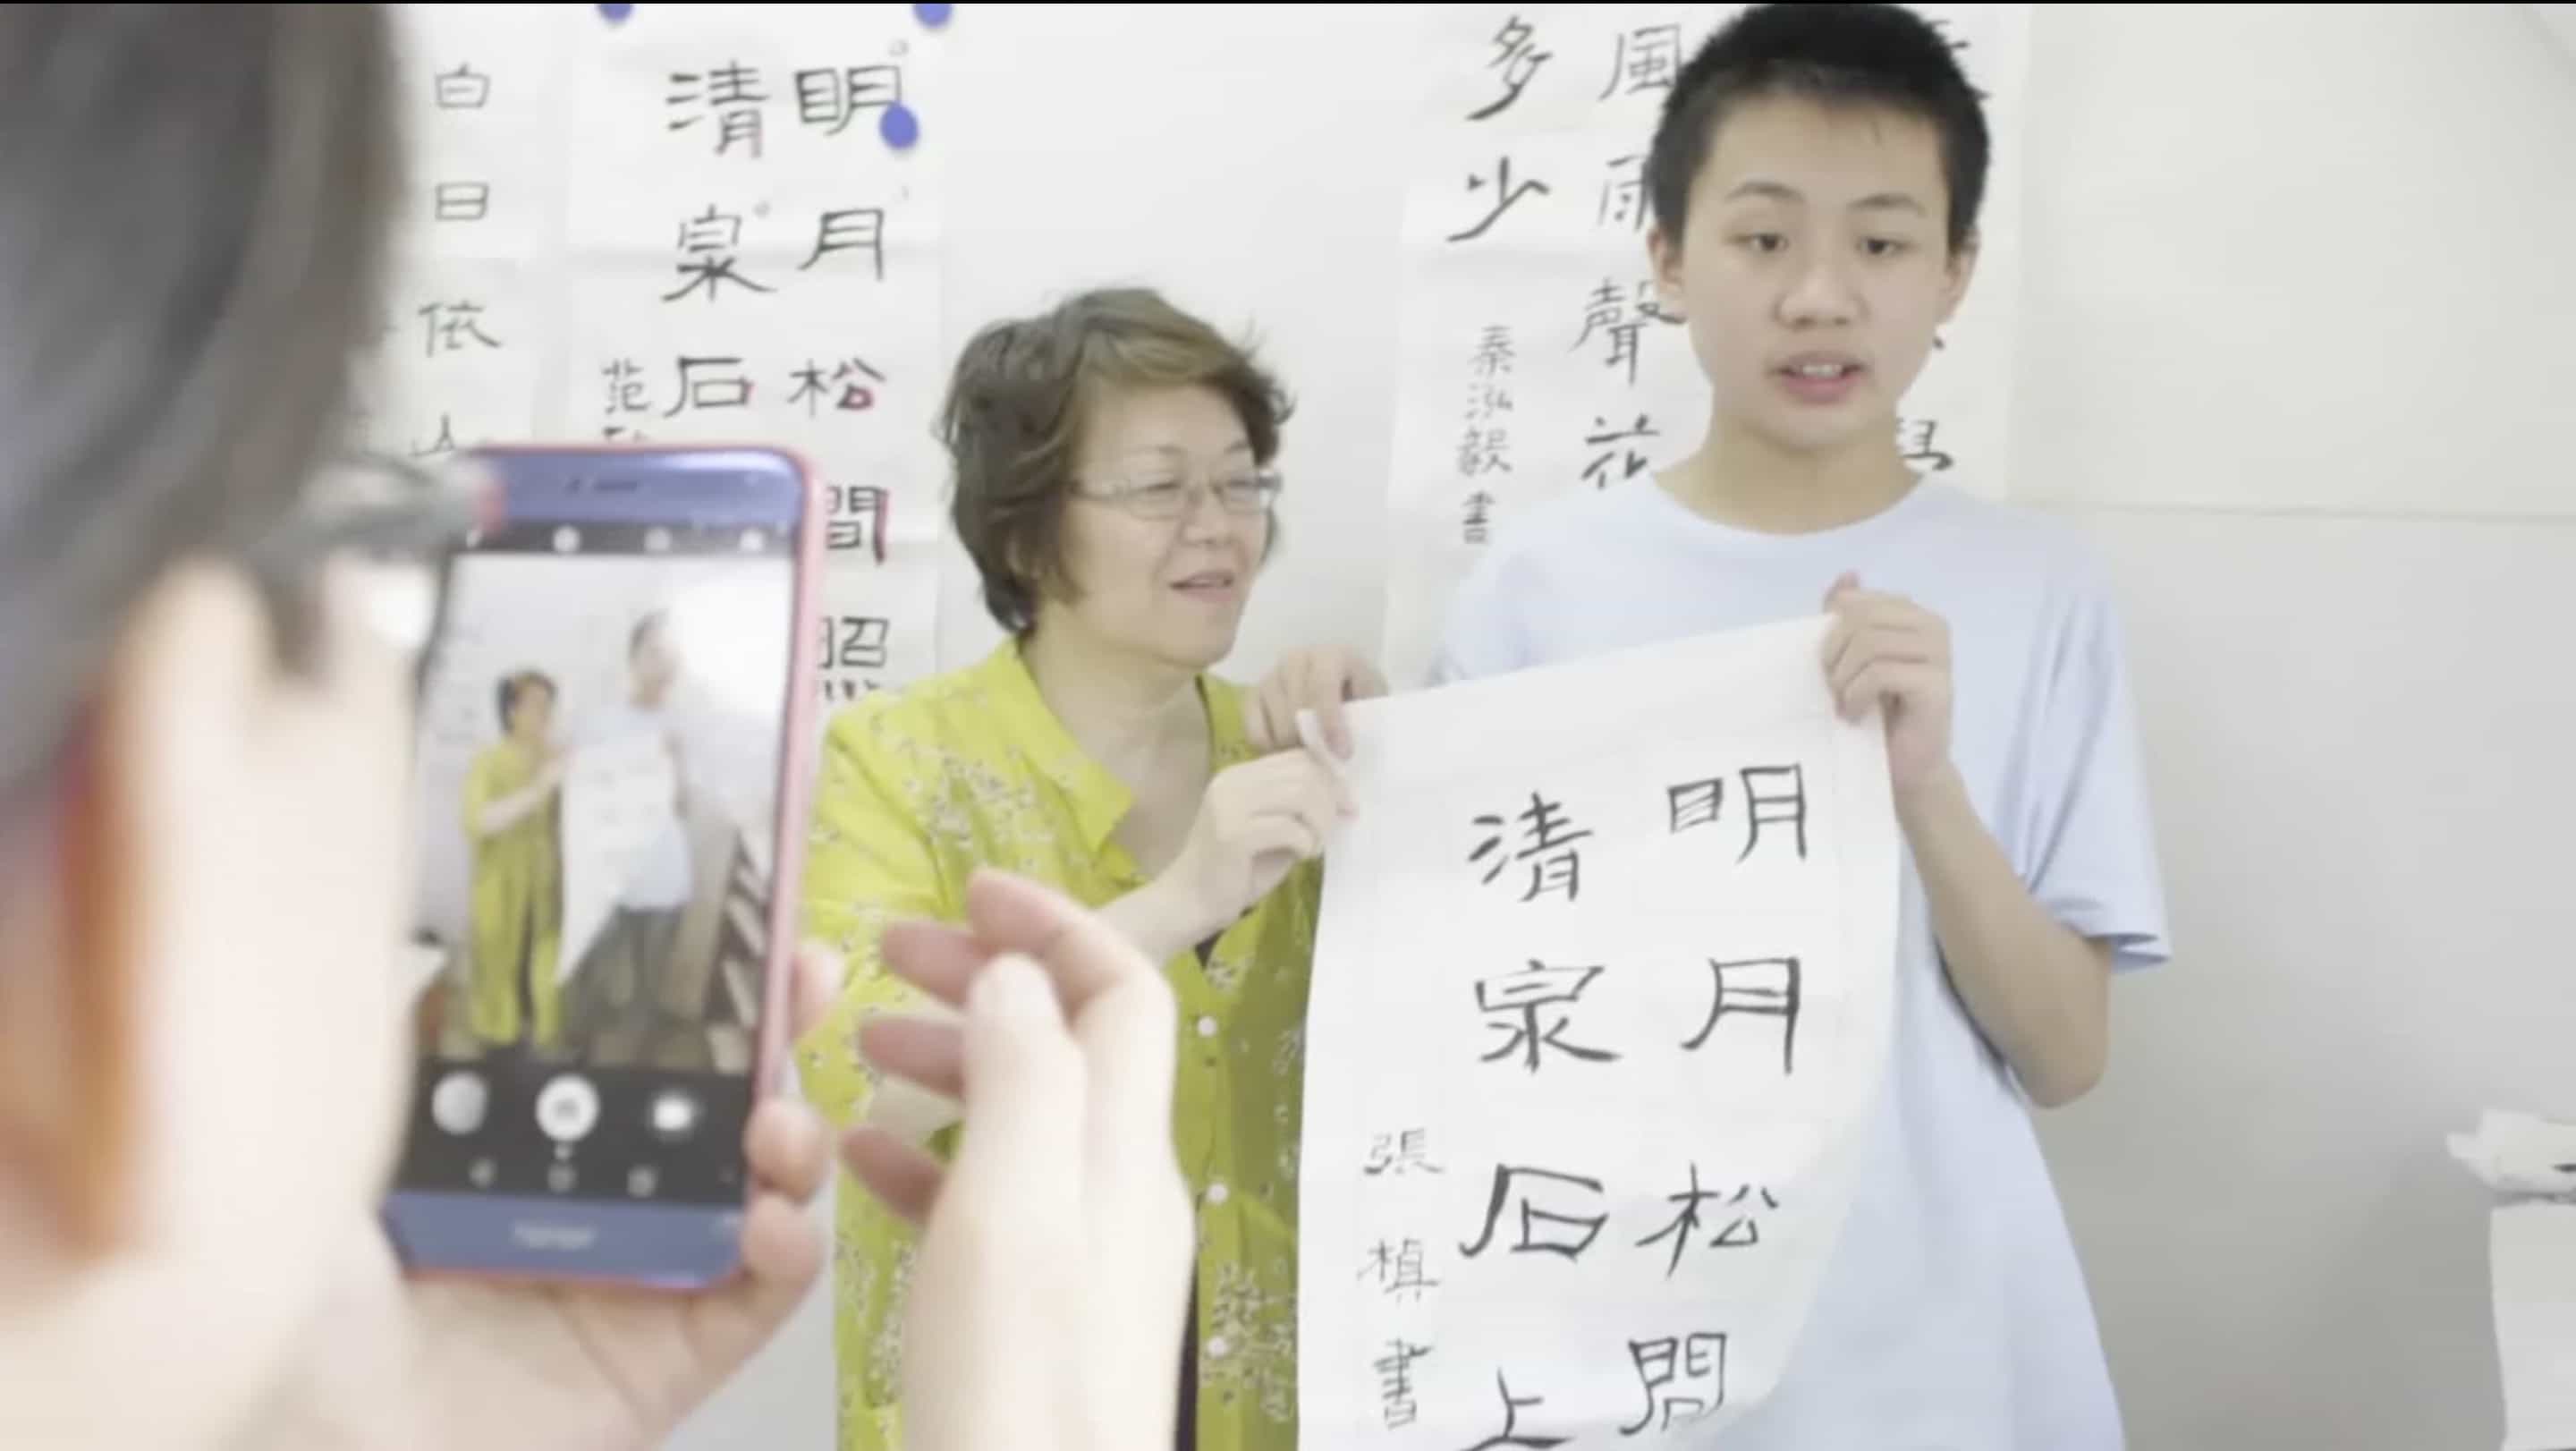 白日依山
明月松間照
清泉石
范
風雨聲花
多少
秦泓毅書
明月松間
清泉石上
張楨書